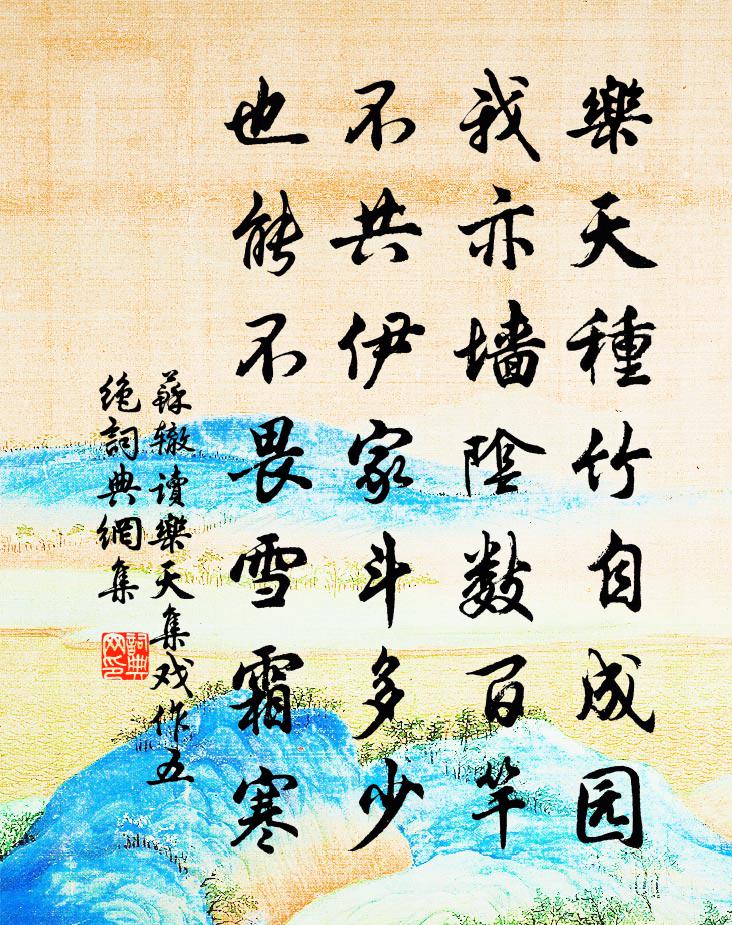 樂天種竹自成园
我亦墙陰數百竿
不共伊家斗多少
也能不畏雪霜寒
蘇辙讀樂天集戏作五
絶詞典網集
詞典
网印